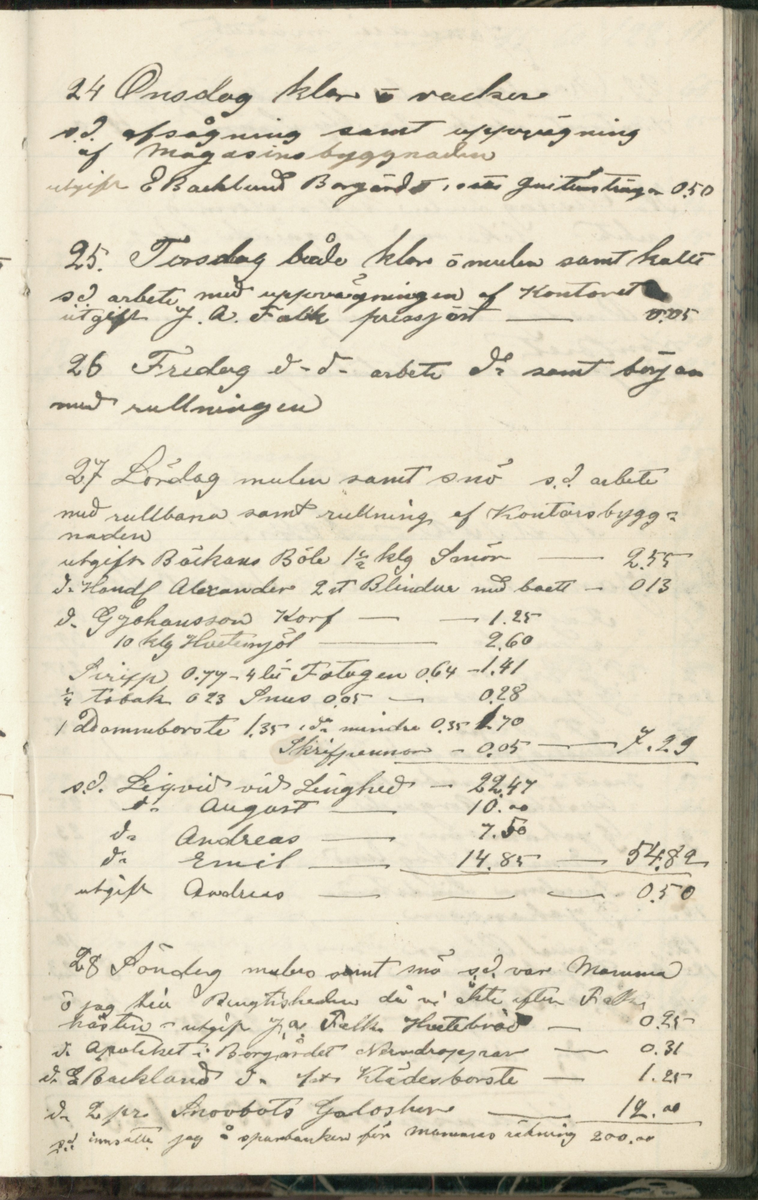 24 Onsdag klar o vacker
s.d. afsågning samt uppvägning
af Magasinsbyggnaden
utgift E Backlund Borgärdt 0.50
25. Torsdag både klar o mulen samt kallt
s.d. arbete med uppvägningen af Kontoret
utgift J. A. Falk pressjäst — 0.05
26 Fredag d-d- arbete do samt början
med rullningen
27 Lördag mulen samt snö s.d. arbete
med rullbana samt rullning af Kontorsbygg=
naden
utgift Bäckans Böle 1½ klg Smör — 2.55
d. Handl Alexander 2 st Blindur med bett — 013
d. G Johansson Korf — — 1.25
10 klg Hvetemjöl — 2.60
Sirapp 0.77 - 4 lit Fotogen 064 - 1.41
¼ tobak 023 Snus 0.05 — 0.28
1 Dammborste 1.35, do mindre 0.35 1.70
Skrifpennor - 0.05 — 7.29
s.d. Liqvid vid Linghed — 22.47
d. August — 10.00
d. Andreas — 7.50
d. Emil — 14.85 — 54.82
utgift Andreas — — — 0.50
28 Söndag mulen samt snö s.d. var Mamma
o jag till Bengtsheden då vi åkte efter Falks
hästen - utgift J.A. Falk Hvetebröd — 0.25
d. Apoteket i Borgärdet Nervdroppar — 0.31
d. E Backland d. Klädesborste — 1.25
d. 2 pr. Snovbots Galosher — 12.00
s.d. innsatte jag å sparbanken för mammas räkning 200.00